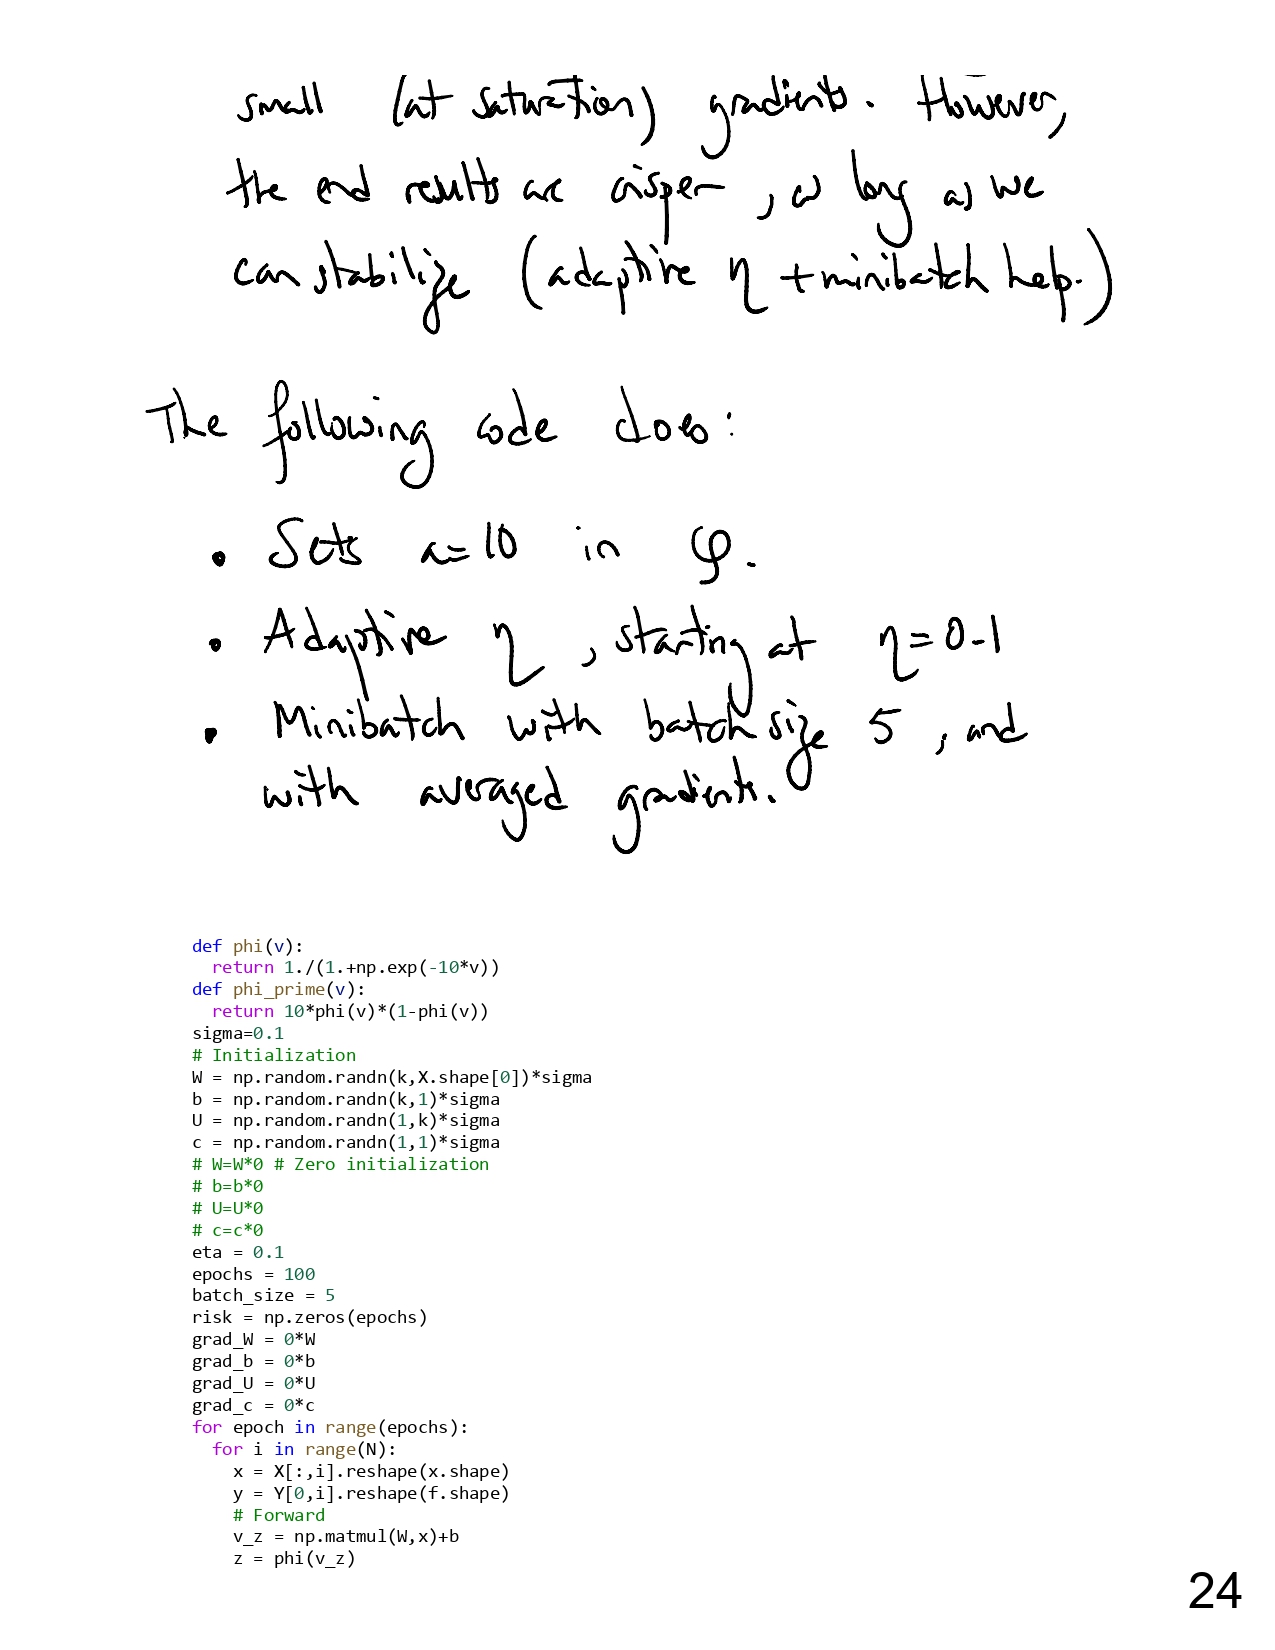 small (at saturation) gradients. However,
the end results are crisper, as long as we
can stabilize (adaptive η + minibatch help.)
The following code does:
• Sets a=10 in φ.
• Adaptive η, starting at η=0.1
• Minibatch with batch size 5, and
with averaged gradients.
def phi(v):
  return 1./(1.+np.exp(-10*v))
def phi_prime(v):
  return 10*phi(v)*(1-phi(v))
sigma=0.1
# Initialization
W = np.random.randn(k,X.shape[0])*sigma
b = np.random.randn(k,1)*sigma
U = np.random.randn(1,k)*sigma
c = np.random.randn(1,1)*sigma
# W=W*0 # Zero initialization
# b=b*0
# U=U*0
# c=c*0
eta = 0.1
epochs = 100
batch_size = 5
risk = np.zeros(epochs)
grad_W = 0*W
grad_b = 0*b
grad_U = 0*U
grad_c = 0*c
for epoch in range(epochs):
  for i in range(N):
    x = X[:,i].reshape(x.shape)
    y = Y[0,i].reshape(f.shape)
    # Forward
    v_z = np.matmul(W,x)+b
    z = phi(v_z)
24